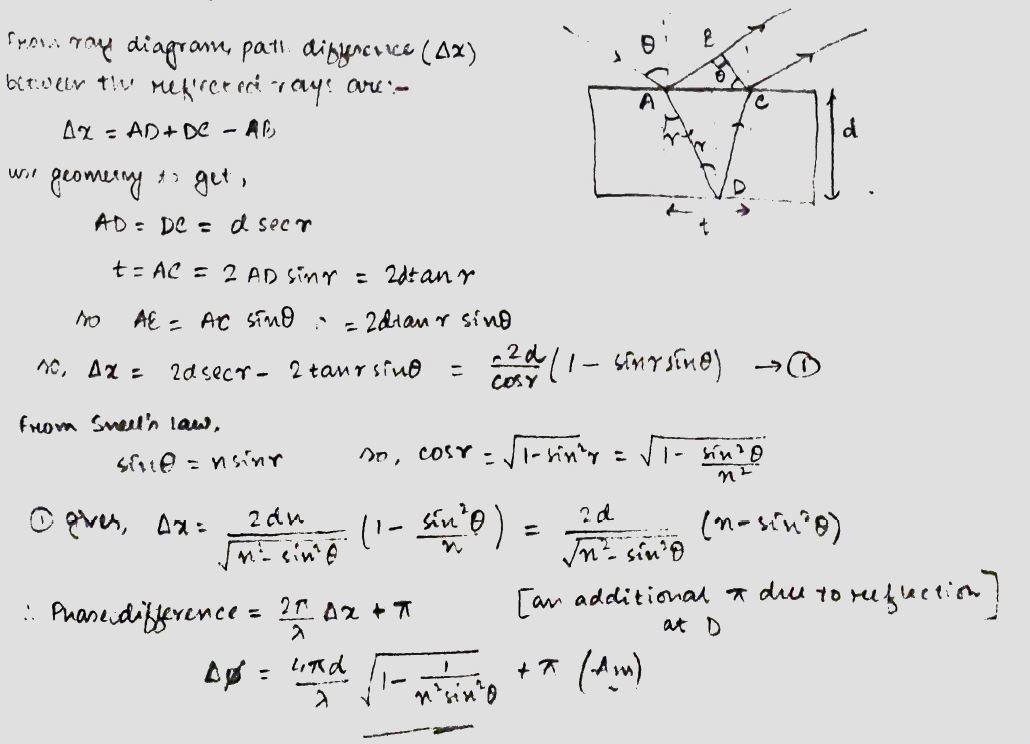 From ray diagram, path difference (Δx)
between the reflected rays are:-
Δx = AD + DC - AB
use geometry to get,
AD = DC = d sec r
t = AC = 2 AD sin r = 2d tan r
so AE = AC sinθ = 2d tan r sinθ
so, Δx = 2d sec r - 2 tan r sinθ = 2d/cos r (1 - sin r sinθ) → ①
From Snell's law,
sinθ = n sin r so, cos r = √(1 - sin² r) = √(1 - sin²θ/n²)
① gives, Δx = 2dn/√(n² - sin²θ) (1 - sin²θ/n) = 2d/√(n² - sin²θ) (n - sin²θ)
∴ Phase difference = 2π/λ Δx + π [an additional π due to reflection]
at D
Δφ = 4πd/λ √(1 - 1/(n² sin²θ)) + π (Am)
θ E
θ
A C
d
r r
D
t